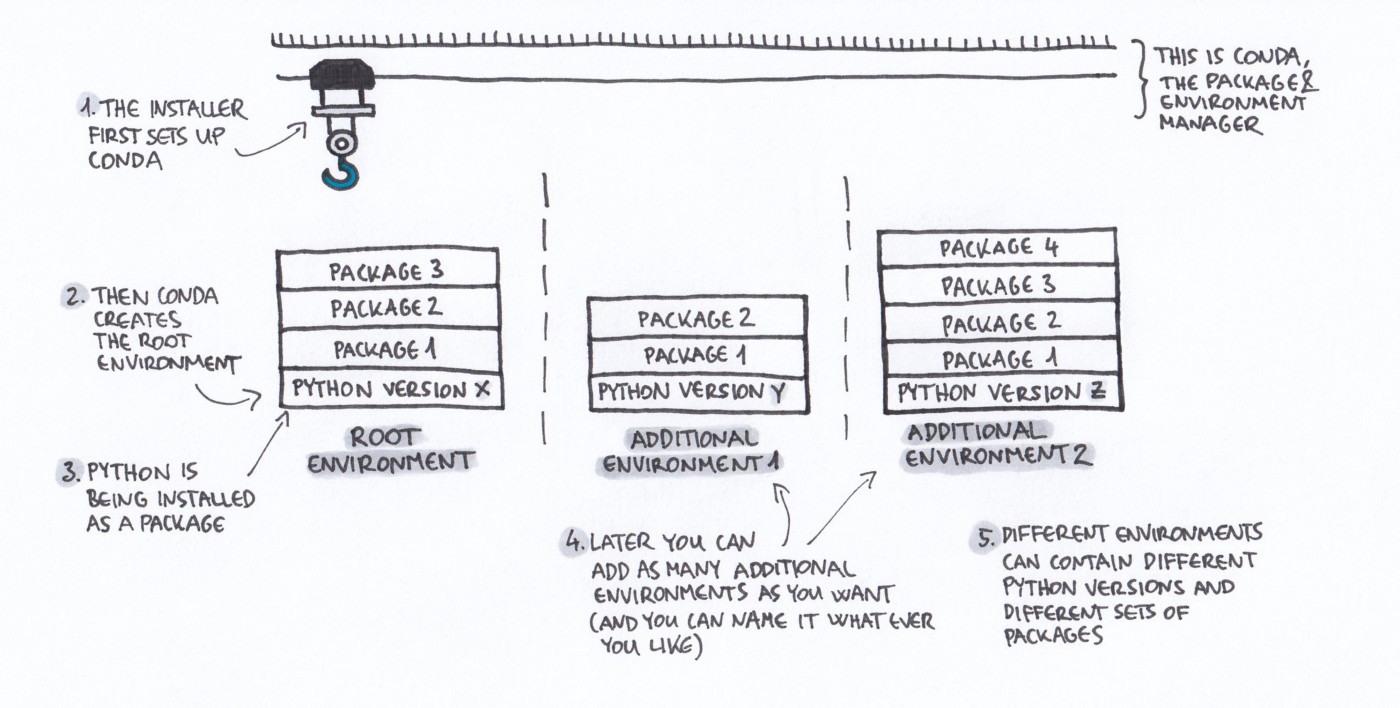 THIS IS CONDA,
THE PACKAGE &
ENVIRONMENT
MANAGER
1. THE INSTALLER
FIRST SETS UP
CONDA
2. THEN CONDA
CREATES
THE ROOT
ENVIRONMENT
PACKAGE 3
PACKAGE 2
PACKAGE 1
PYTHON VERSION X
ROOT
ENVIRONMENT
PACKAGE 2
PACKAGE 1
PYTHON VERSION Y
ADDITIONAL
ENVIRONMENT 1
PACKAGE 4
PACKAGE 3
PACKAGE 2
PACKAGE 1
PYTHON VERSION Z
ADDITIONAL
ENVIRONMENT 2
3. PYTHON IS
BEING INSTALLED
AS A PACKAGE
4. LATER YOU CAN
ADD AS MANY ADDITIONAL
ENVIRONMENTS AS YOU WANT
(AND YOU CAN NAME IT WHAT EVER
YOU LIKE)
5. DIFFERENT ENVIRONMENTS
CAN CONTAIN DIFFERENT
PYTHON VERSIONS AND
DIFFERENT SETS OF
PACKAGES